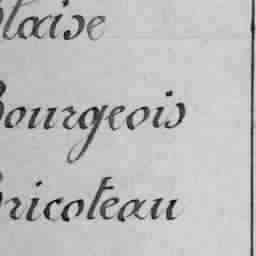 Blaise
Bourgeois
Bricoteau